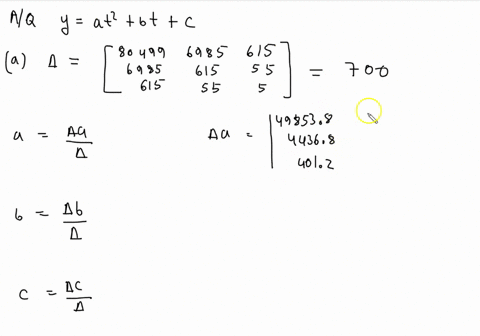 A/Q y = at² + bt + c
(a) Δ = [ 80499 6985 615
6985 615 55
615 55 5 ] = 700
a = Δa/Δ Δa = | 49853.8
4436.8
401.2
b = Δb/Δ
c = Δc/Δ